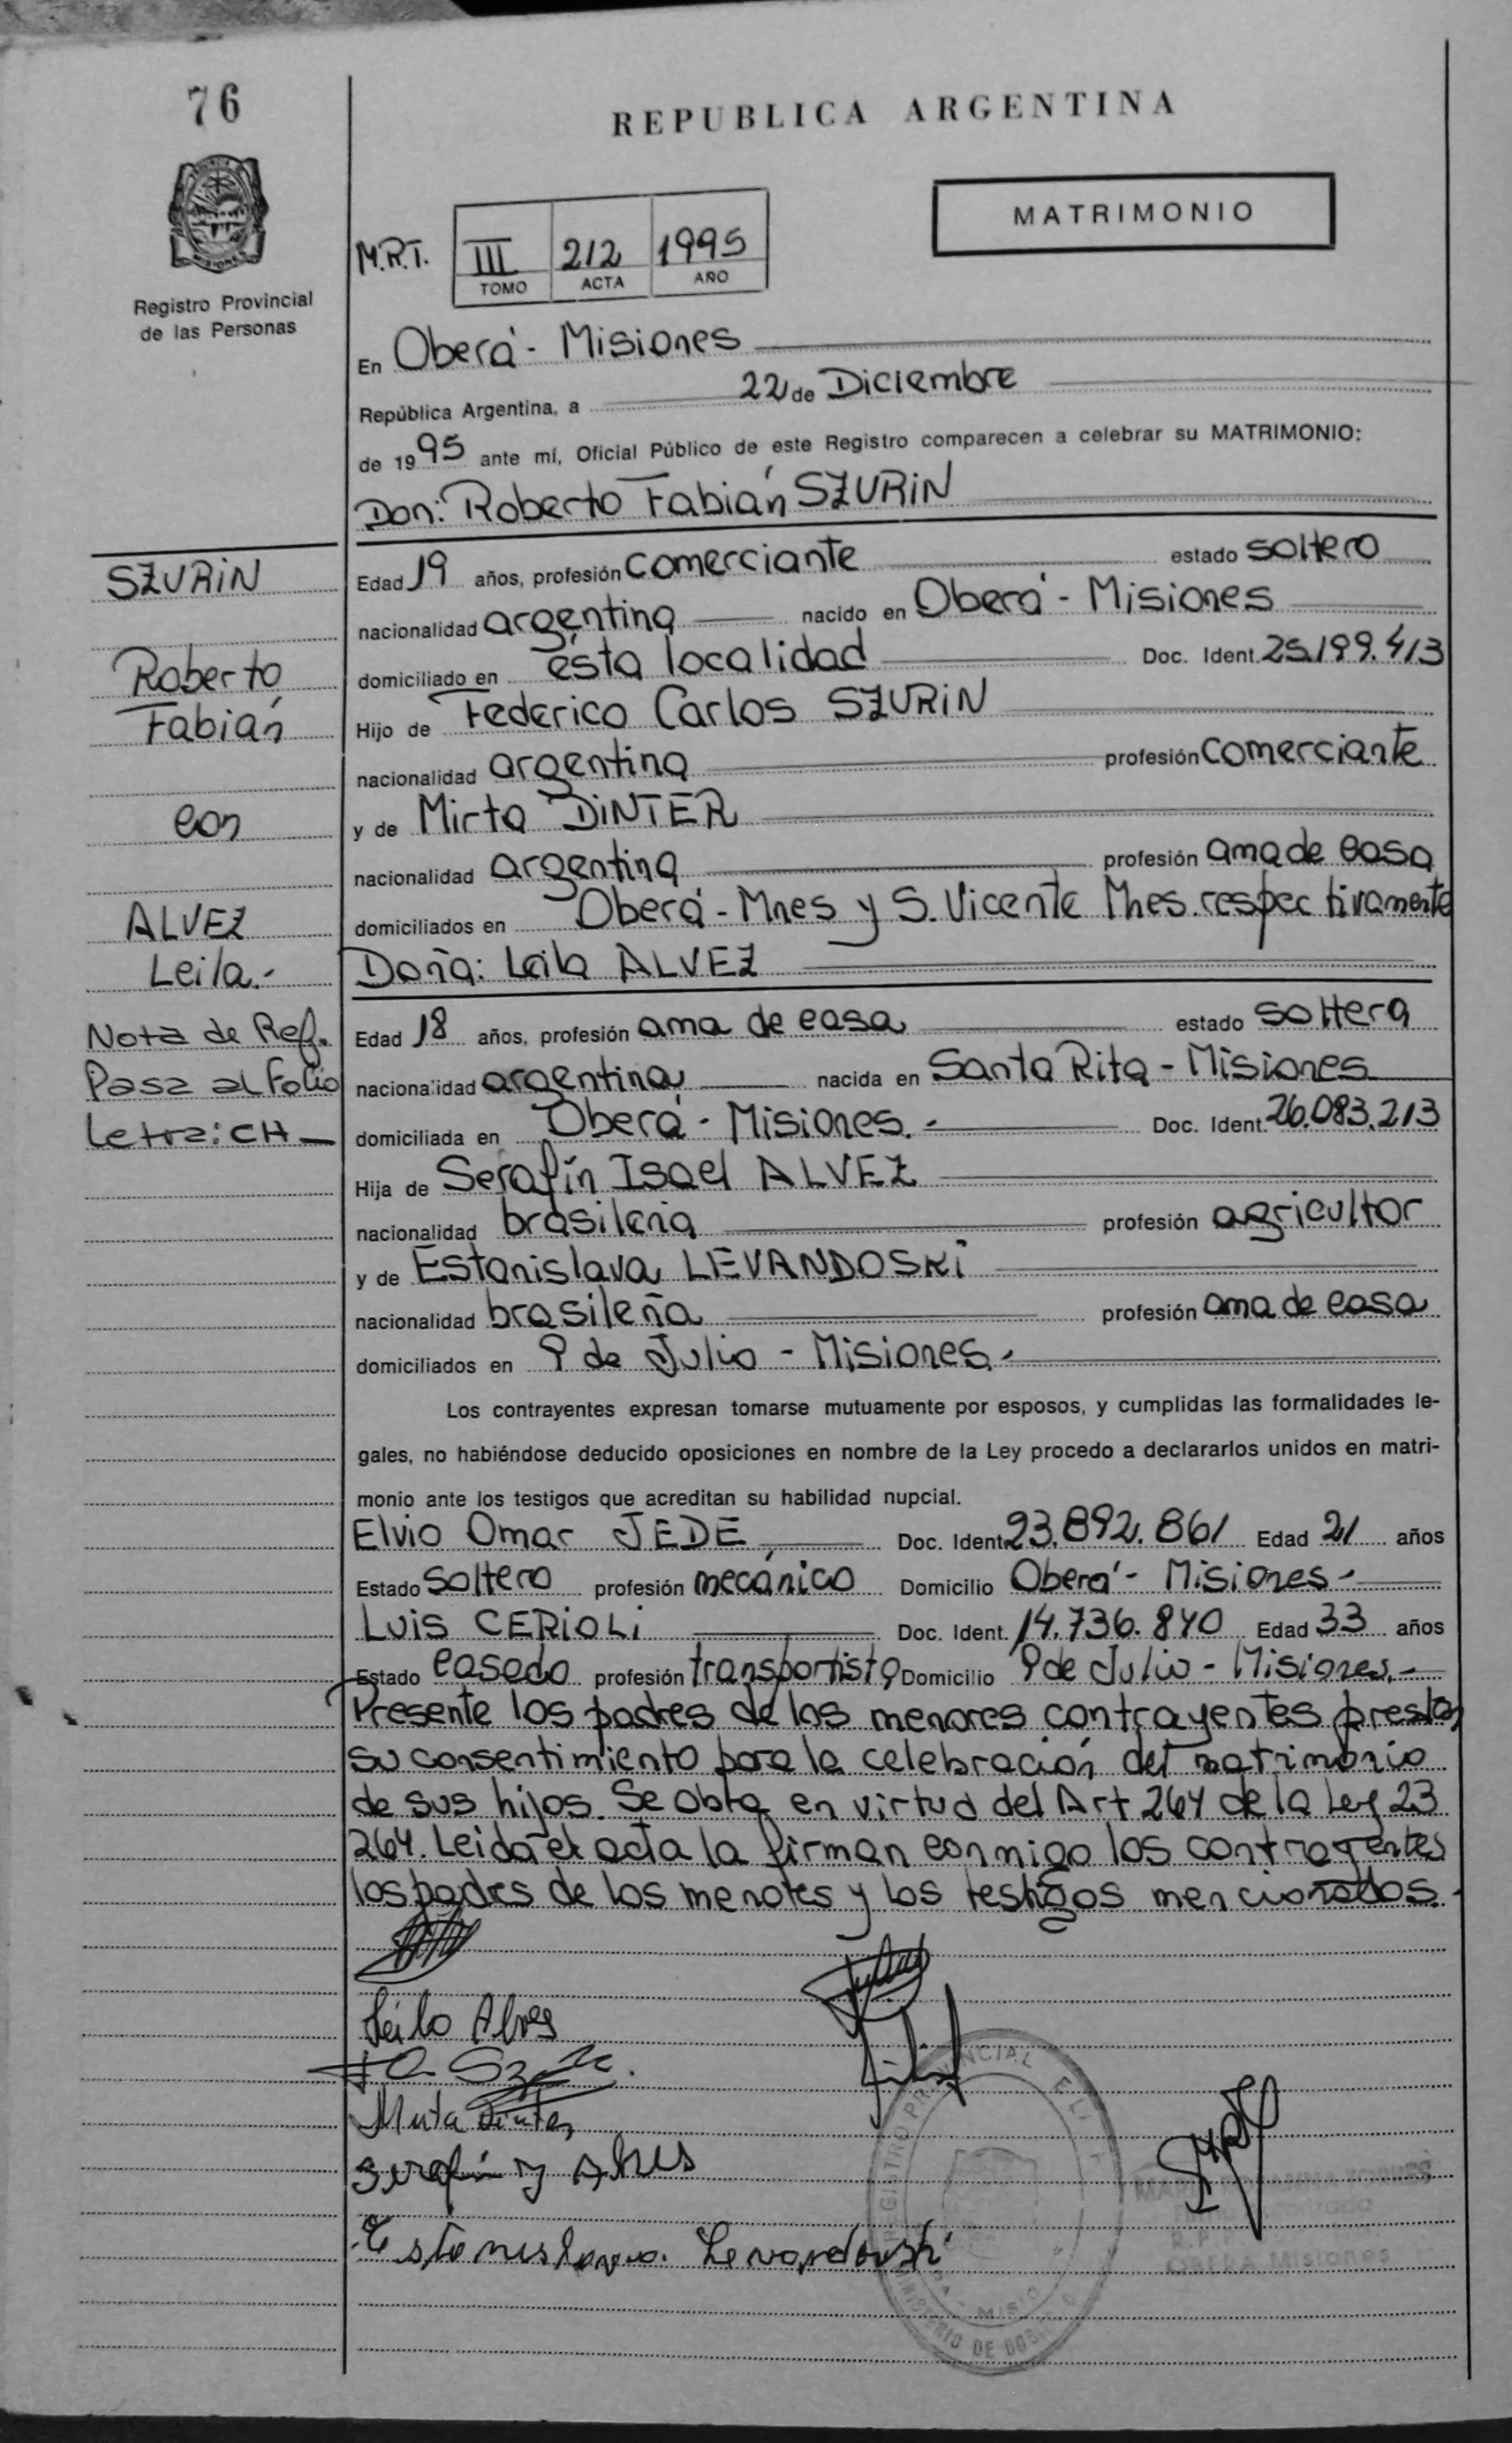 76
REPUBLICA ARGENTINA
MATRIMONIO
Registro Provincial
de las Personas
M.R.T. III 212 1995
TOMO ACTA AÑO
En Oberá - Misiones
República Argentina, a 22 de Diciembre
de 1995 ante mí, Oficial Público de este Registro comparecen a celebrar su MATRIMONIO:
Don: Roberto Fabián SZURIN
SZURIN
Roberto
Fabián
con
ALVEZ
Leila.-
Nota de Ref.
Pasa al Folio
Letra: CH
Edad 19 años, profesión comerciante estado soltero
nacionalidad argentina nacido en Oberá - Misiones
domiciliado en ésta localidad Doc. Ident. 25.199.413
Hijo de Federico Carlos SZURIN
nacionalidad argentina profesión comerciante
y de Mirta DINTER
nacionalidad argentina profesión ama de casa
domiciliados en Oberá - Mnes y S. Vicente Mnes. respectivamente
Doña: Leila ALVEZ
Edad 18 años, profesión ama de casa estado soltera
nacionalidad argentina nacida en Santa Rita - Misiones
domiciliada en Oberá - Misiones.- Doc. Ident. 26.083.213
Hija de Serafín Isael ALVEZ
nacionalidad brasileña profesión agricultor
y de Estanislava LEVANDOSKI
nacionalidad brasileña profesión ama de casa
domiciliados en 9 de Julio - Misiones.-
Los contrayentes expresan tomarse mutuamente por esposos, y cumplidas las formalidades le-
gales, no habiéndose deducido oposiciones en nombre de la Ley procedo a declararlos unidos en matri-
monio ante los testigos que acreditan su habilidad nupcial.
Elvio Omar JEDE Doc. Ident. 23.892.861 Edad 21 años
Estado soltero profesión mecánico Domicilio Oberá - Misiones-
Luis CERIOLI Doc. Ident. 14.736.840 Edad 33 años
Estado casado profesión transportista Domicilio 9 de Julio - Misiones.-
Presente los padres de los menores contrayentes prestan
su consentimiento para la celebración del matrimonio
de sus hijos. Se obta en virtud del Art 264 de la Ley 23
264. Leida el acta la firman conmigo los contrayentes
los padres de los menores y los testigos mencionados.-
Leila Alves
Mirta Dinter
Serafin I Alves
Estanislava Levandoski
REGISTRO PROVINCIAL
MINISTERIO DE GOB
OBERA Misiones